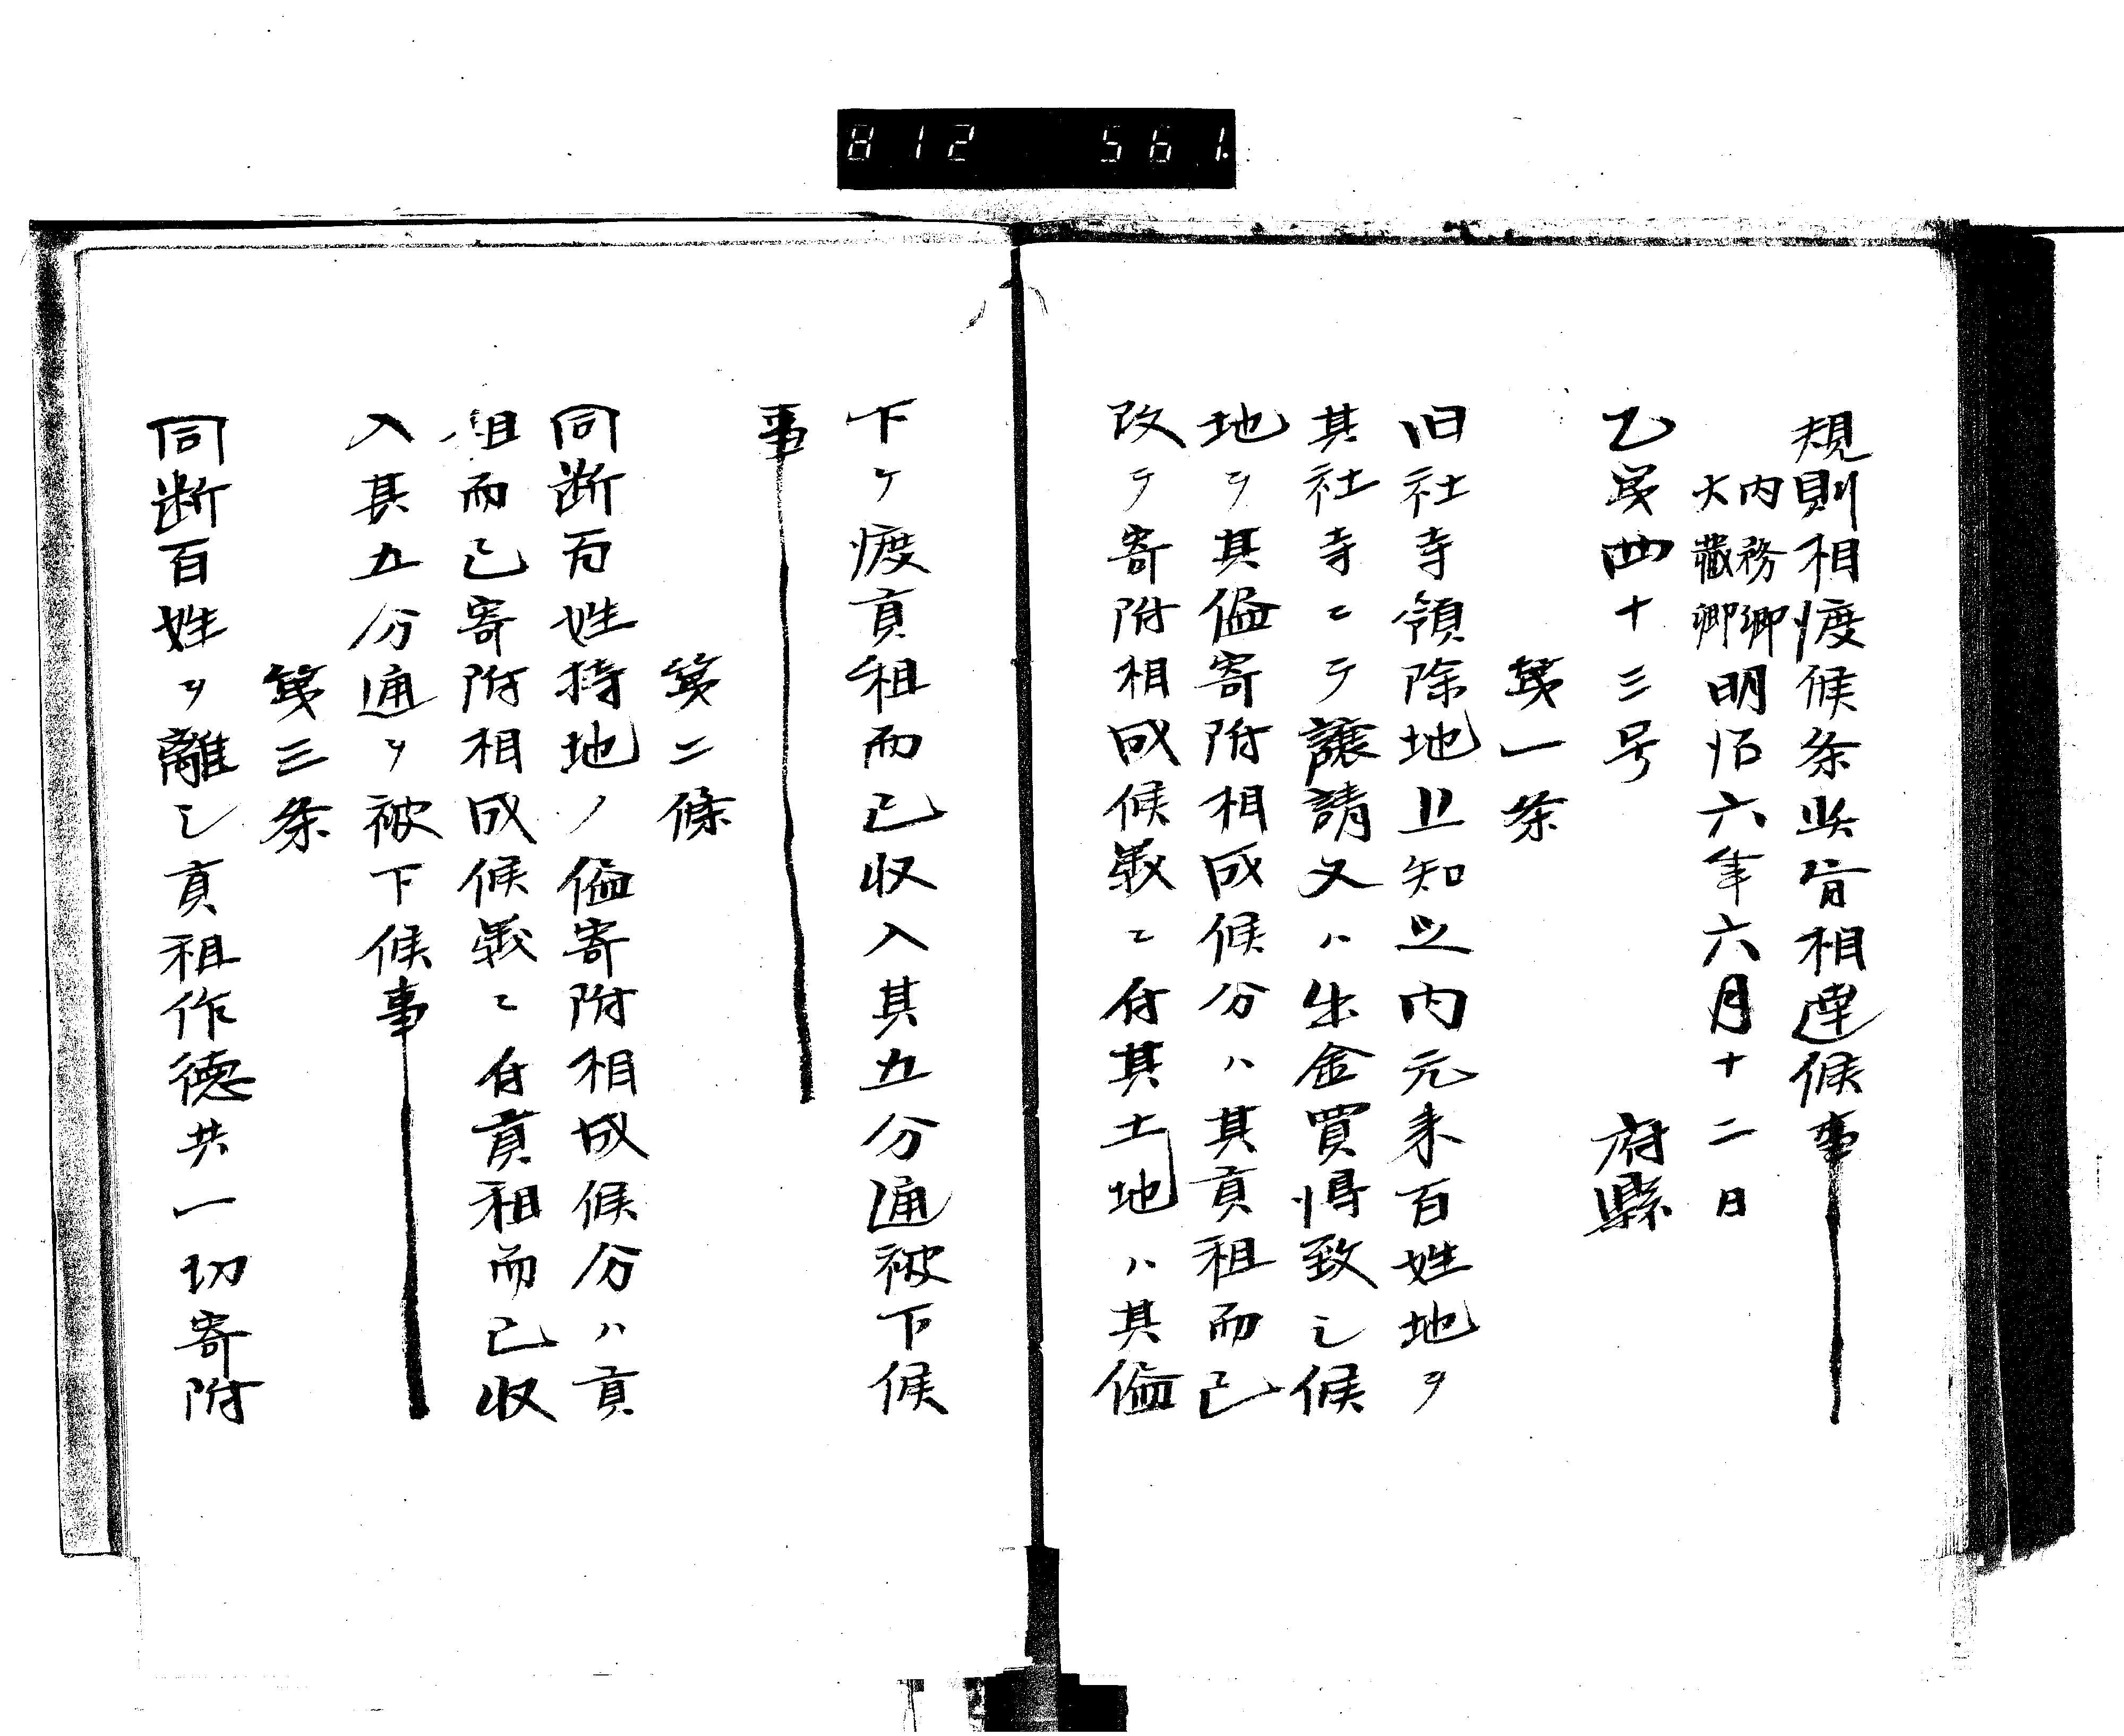 812 561.
規則相渡候条此旨相達候事
内務卿
大蔵卿 明治六年六月十二日
乙第四十三号 府縣
第一条
旧社寺領除地上知之内元来百姓地ヲ
其社寺ニテ譲請又ハ出金買得致シ候
地ヲ其儘寄附相成候分ハ其貢租而已
改テ寄附相成候義ニ付其土地ハ其儘
下ケ渡貢租而已収入其五分通被下候
事
第二條
同断百姓持地ノ儘寄附相成候分ハ貢
租而已寄附相成候義ニ付貢租而已収
入其五分通ヲ被下候事
第三条
同断百姓ヲ離シ貢租作徳共一切寄附